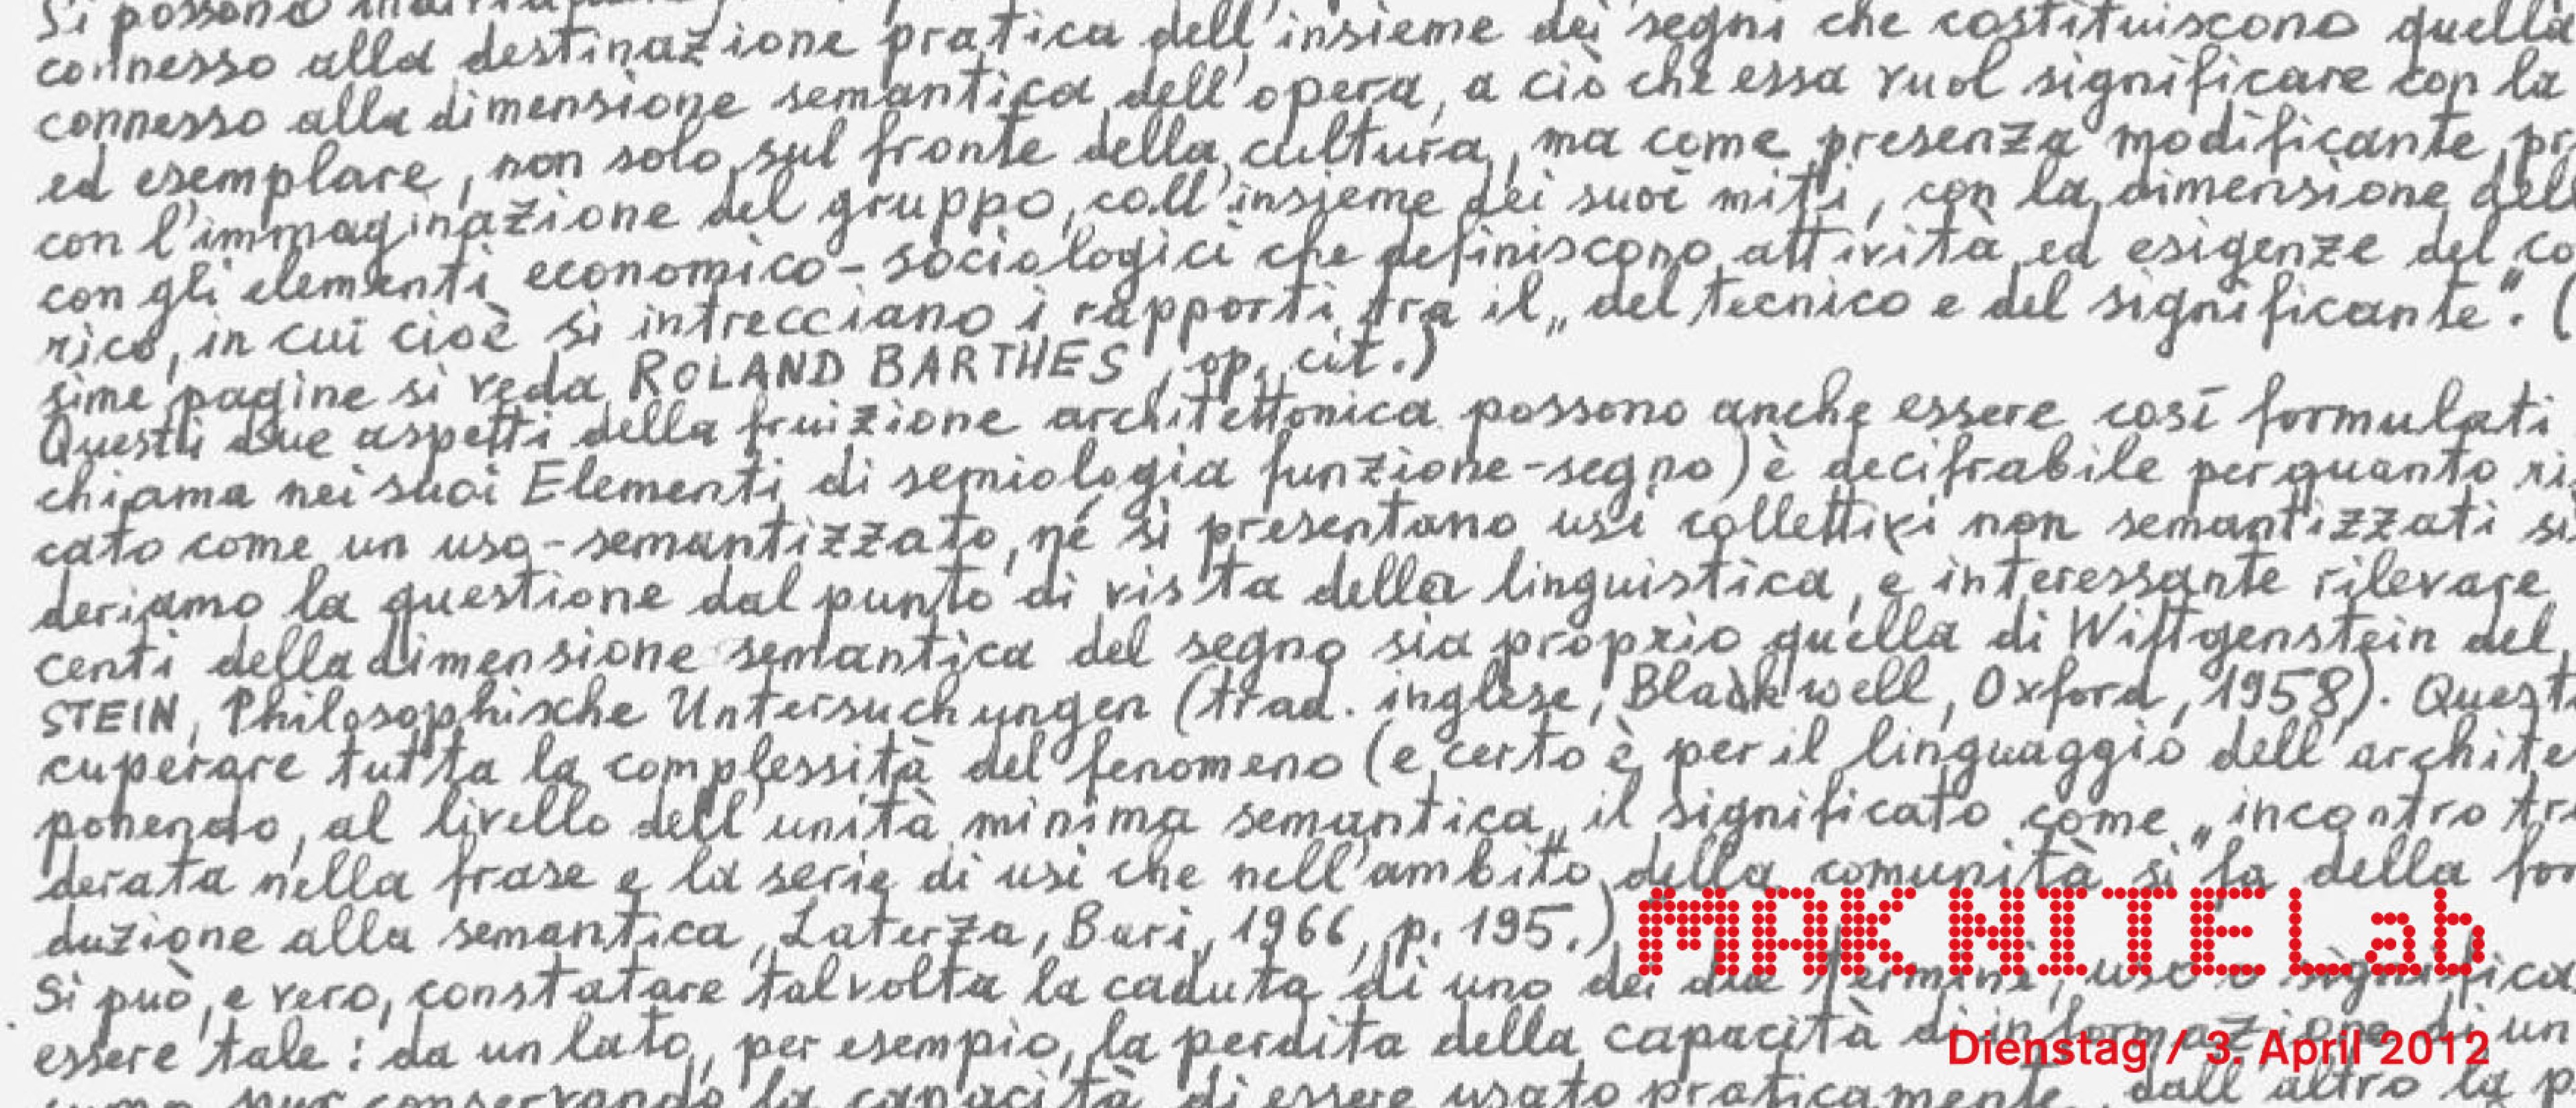 Si possono
connesso alla destinazione pratica dell'insieme dei segni che costituiscono quella
connesso alla dimensione semantica dell'opera, a ciò che essa vuol significare con la
ed esemplare, non solo sul fronte della cultura, ma come presenza modificante, pr
con l'immaginazione del gruppo, coll'insieme dei suoi miti, con la dimensione dell
con gli elementi economico-sociologici che definiscono attività ed esigenze del co
rico, in cui cioè si intrecciano i rapporti tra il „del tecnico e del significante". (
sime pagine si veda ROLAND BARTHES, op. cit.)
Questi due aspetti della fruizione architettonica possono anche essere così formulati
chiama nei suoi Elementi di semiologia funzione-segno) è decifrabile per quanto ri
cato come un uso-semantizzato, né si presentano usi collettivi non semantizzati si
deriamo la questione dal punto di vista della linguistica, e interessante rilevare
centi della dimensione semantica del segno sia proprio quella di Wittgenstein del
STEIN, Philosophische Untersuchungen (trad. inglese, Blackwell, Oxford, 1958). Quest
cuperare tutta la complessità del fenomeno (e certo è per il linguaggio dell'archite
ponendo, al livello dell'unità minima semantica „il significato come „incontro tr
derata nella frase e la serie di usi che nell'ambito della comunità si fa della for
duzione alla semantica, Laterza, Bari, 1966, p. 195.)
MAK NITE Lab
Si può, e vero, constatare talvolta la caduta di uno dei due termini, uso o significa
essere tale: da un lato, per esempio, la perdita della capacità di informazione di un
Dienstag / 3. April 2012
pur conservando la capacità di essere usato praticamente, dall'altro la p